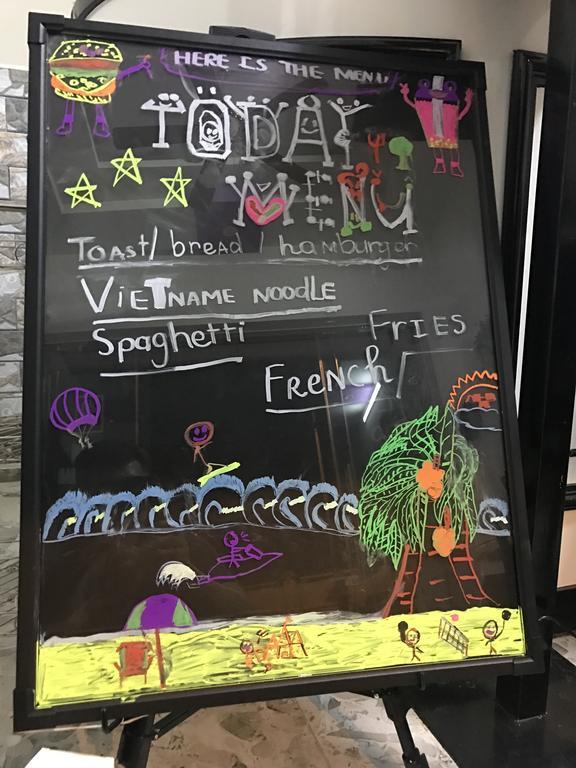 HERE IS THE MENU
TODAY
MENU
TOAST/ bread / hamburger
VIETNAME NOODLE
Spaghetti
FRIES
FRENCH